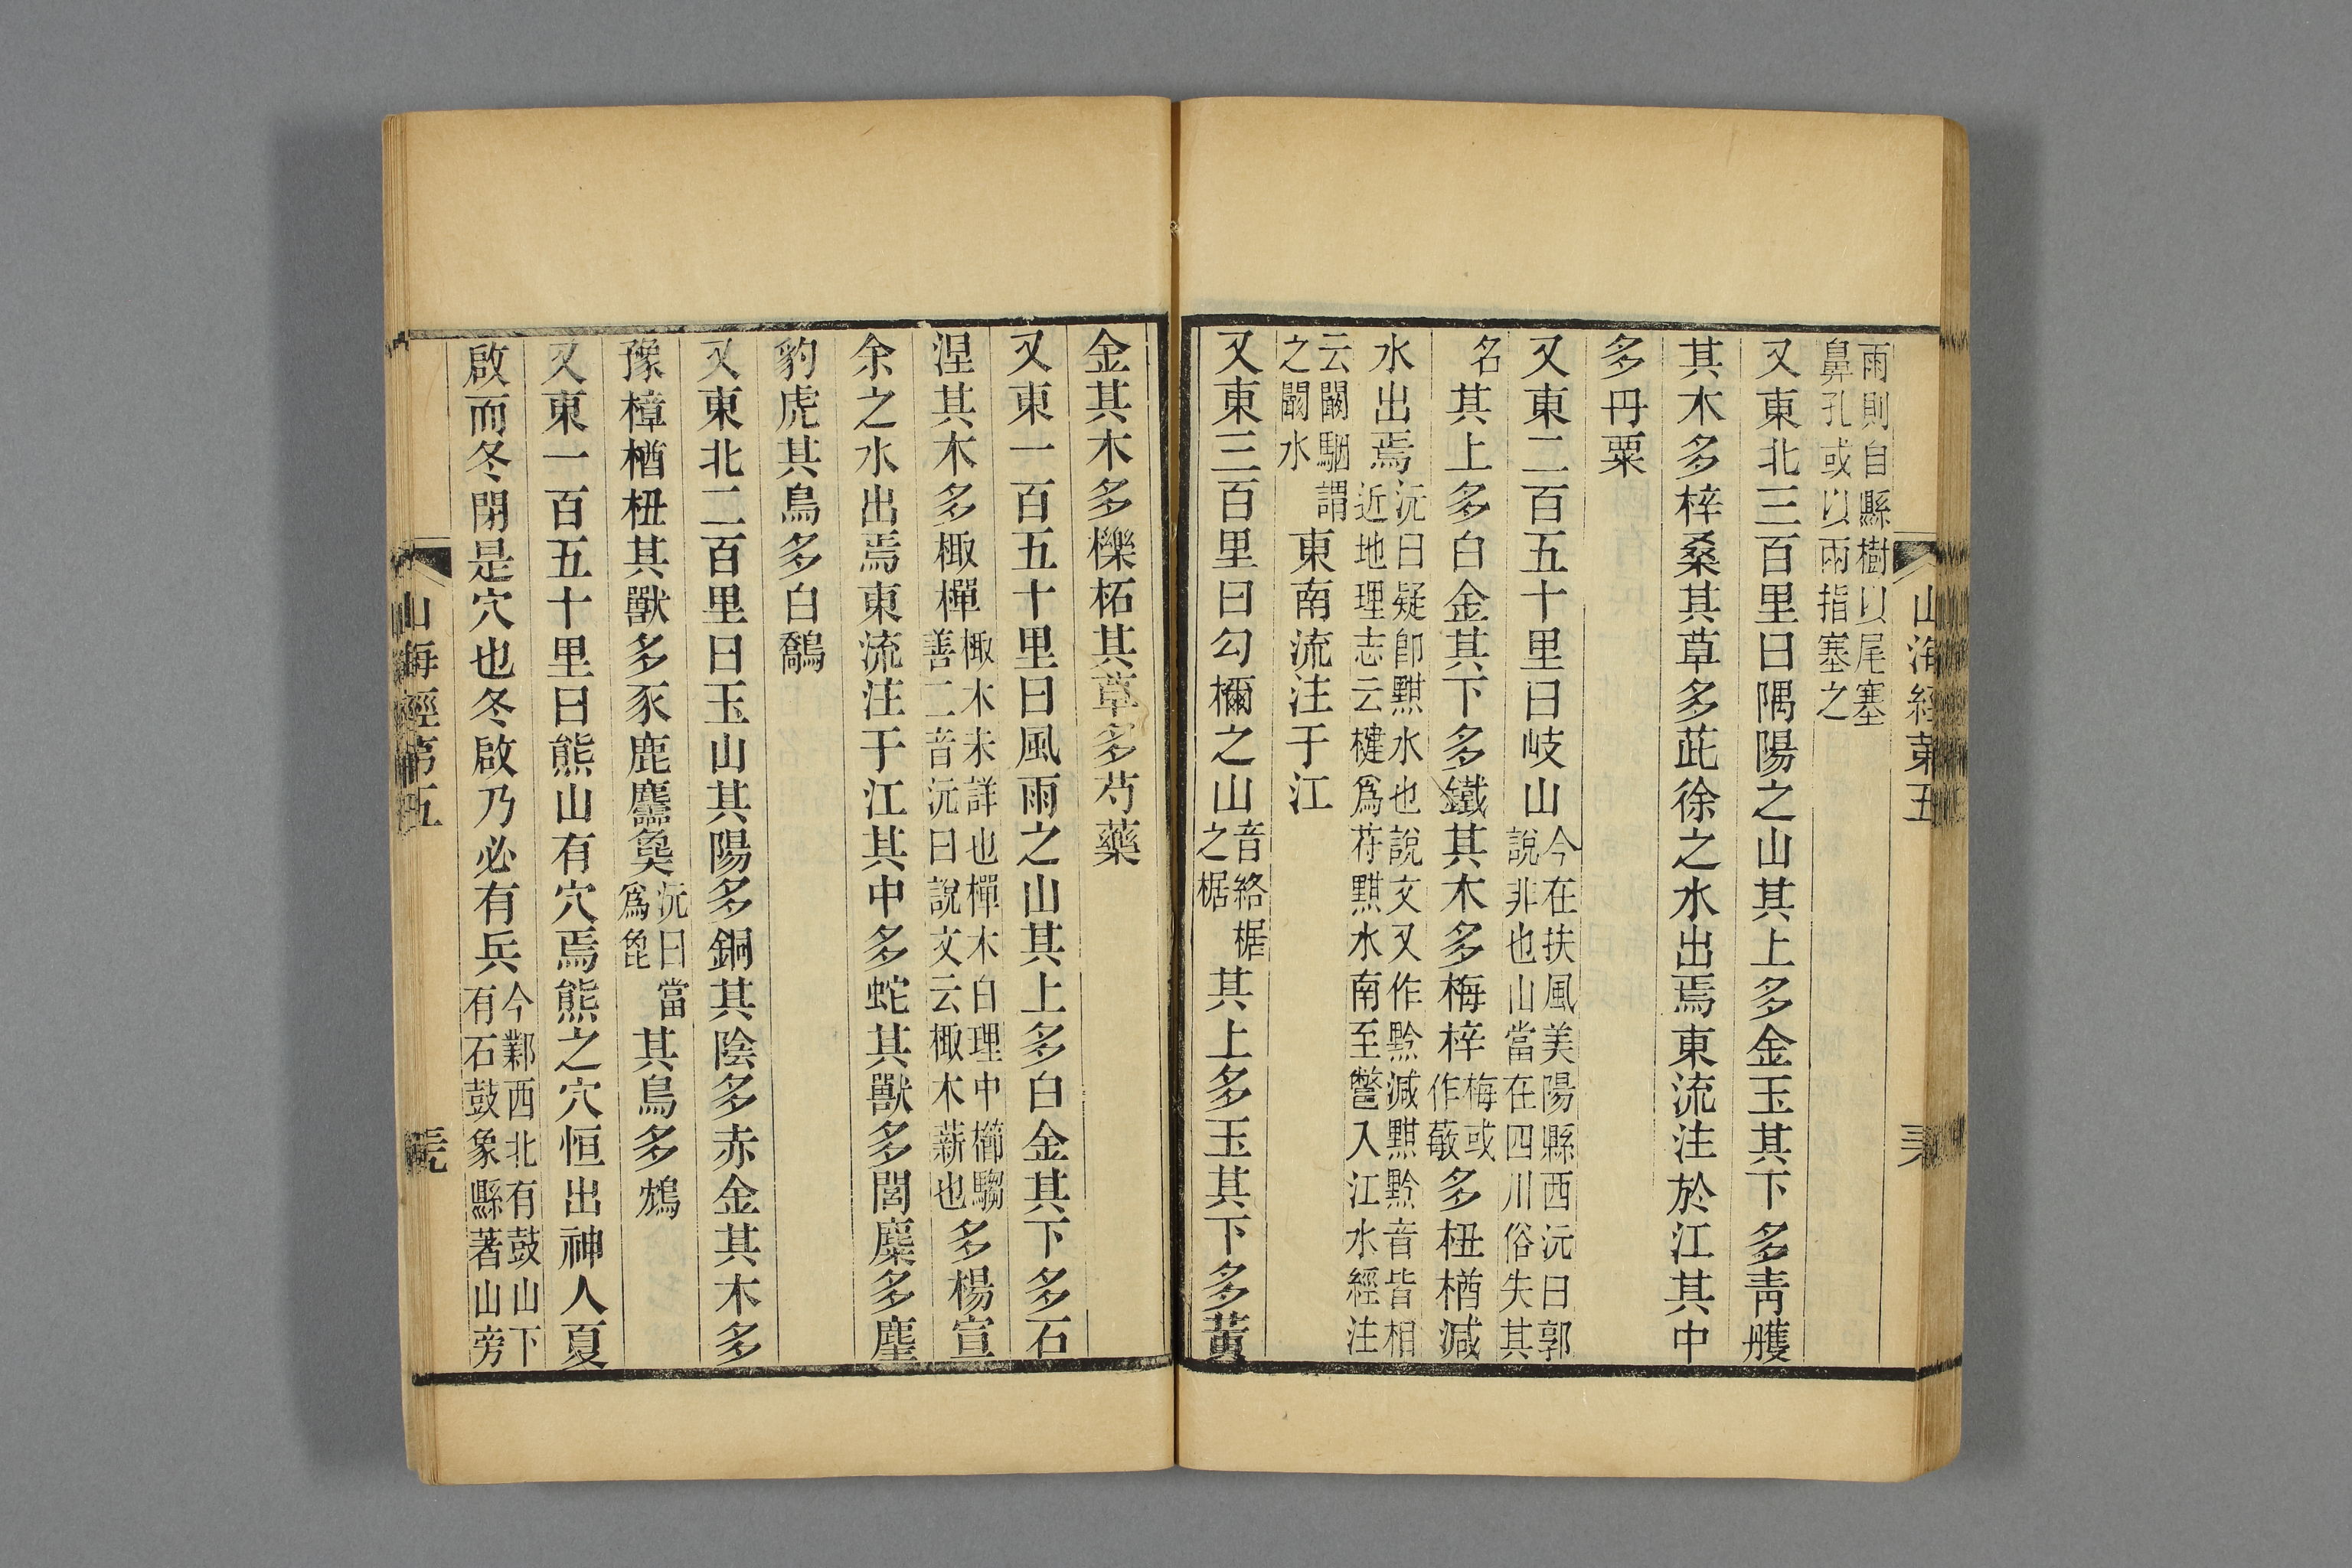 山海經第五
雨則自縣樹以尾塞鼻孔或以兩指塞之
又東北三百里曰隅陽之山其上多金玉其下多青雘
其木多梓桑其草多茈徐之水出焉東流注於江其中
多丹粟
又東二百五十里曰岐山今在扶風美陽縣西沅曰郭說非也山當在四川俗失其
名其上多白金其下多鐵其木多梅梓梅或作䓸多杻楢減
水出焉沅曰疑卽黚水也說文又作黔減黚黔音皆相近地理志云楗爲苻黚水南至鄨入江水經注
云闞駰謂之闞水東南流注于江
又東三百里曰勾檷之山音絡椐之椐其上多玉其下多黃
金其木多櫟柘其草多芍藥
又東一百五十里曰風雨之山其上多白金其下多石
涅其木多棷樿棷木未詳也樿木白理中櫛騶善二音沅曰說文云棷木薪也多楊宣
余之水出焉東流注于江其中多蛇其獸多閭麋多麈
豹虎其鳥多白鷮
又東北二百里曰玉山其陽多銅其陰多赤金其木多
豫樟楢杻其獸多豕鹿麢㚟沅曰當爲㲋其鳥多鴆
又東一百五十里曰熊山有穴焉熊之穴恒出神人夏
啟而冬閉是穴也冬啟乃必有兵今鄴西北有鼓山下有石鼓象縣著山旁
山海經第五